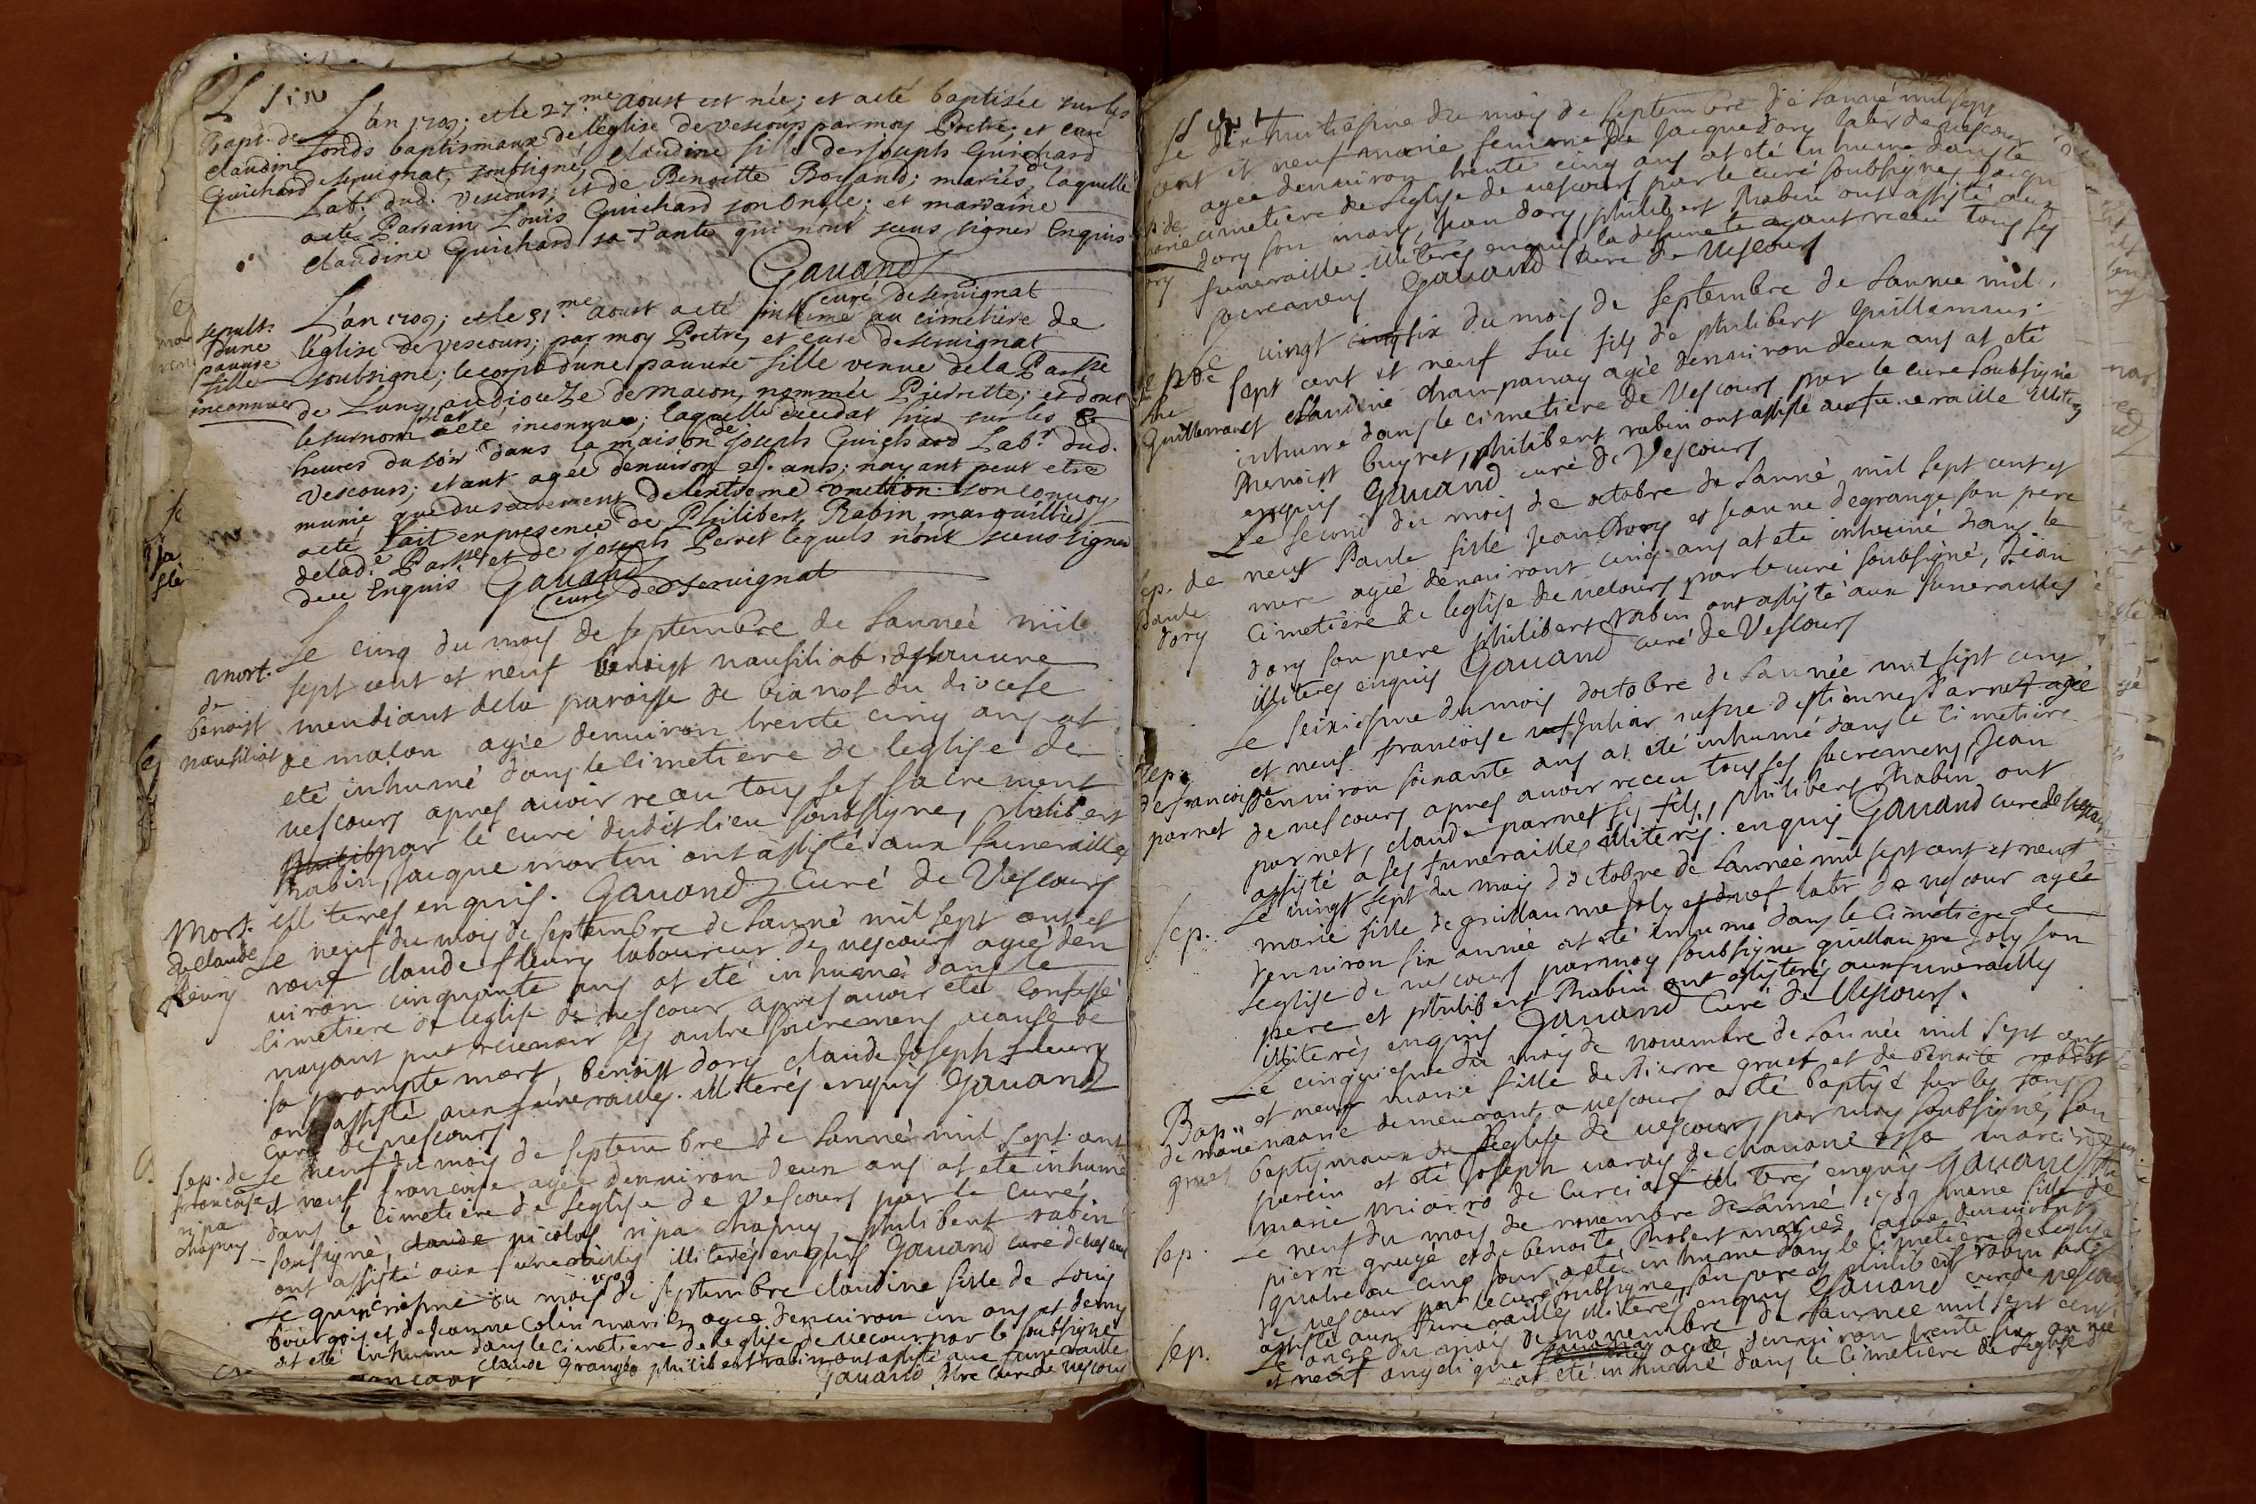 L'an 1709; et le 27.me aoust est née; et a eté baptisée sur les
Bapt. de
claudine
Guichard
fonds baptismaux de l'église de vescours par moy Pretre; et curé
de servignat, soubsigné, claudine fille de Joseph Guichard
Lab.r dud. vescours; et de Benoitte Boyand; mariés, de laquelle
a eté Parrain Louis Guichard son Oncle; et marraine
claudine Guichard sa Tante qui n'ont sceus signer Enquis
Gavand
curé de servignat
sepult.
d'une
pauvre
fille
inconnue
L'an 1709; et le 31.me aoust a eté inhumé au cimetière de
l'église de vescours; par moy Pretre, et curé de servignat
soubsigné; le corps d'une pauvre fille venue de la Par.sse
de Lugny au diocèze de macon, nommée Pierrette; et dont
le surnom a eté inconnu; laquelle
heures du soir dans la maison de joseph Guichard Lab.r dud.
vescours; etant agée d'environ 25. ans; n'ayant peut etre
munie que du sacrement de l'extreme onction. son convoy
a eté fait en presence de Philibert Rabin marguillier
de lad.e Par.sse et de joseph Perret lequels n'ont sceus signer
de ce Enquis Gavand
curé de servignat
mort.
de
benoist
nausiliat
Le cinq du mois de septembre de l'année mil
sept cent et neuf benoist nausiliat
mendiant de la paroisse de bianos du diocese
de macon agée d'environ trente cinq ans at
eté inhumé dans le cimetiere de l'eglise de
vescours apres avoir receu tous ses sacrement
par le curé dudit lieu soubsigne, philibert
rabin, jacque martin ont assisté aux funerailles
illiteres enquis. Gavand Curé de Vescours
Mort.
de claude
fleury
Le neuf du mois de septembre de l'année mil sept cent et
neuf claude fleury laboureur de vescours agée d'en
viron cinquante ans at eté inhumé dans le
cimetiere de l'eglise de vescour apres avoir eté confessé
n'ayant put recevoir ses autre sacremens a cause de
sa prompte mort, benoist dory claude Joseph fleury
ont assisté aux funerailles. illiterés enquis Gavand
curé de vescours
sep. de
francoise
ripa
chapuy
Le neuf du mois de septembre de l'année mil sept cent
et neuf francoise agée d'environ deux ans at eté inhumé
dans le cimetiere de l'eglise de Vescours par le curé
sousigné, claude nicolas ripa chapuy, philibert rabin
ont assisté aux funerailles illiterés enquis Gavand curé de vescour
1709
Le quinziesme du mois de septembre claudine fille de Louis
bourgois et de Jeanne Colin mariés agee d'environ un ans et demy
at eté inhumé dans le cimetiere de l'eglise de vecour par le soubsigné
claude Granges philibert rabin ont assisté aux funeraille
Gavand ptre curé de vescour
Le dix huitiesme du mois de septembre de l'année mil sept
cent et neuf marie femme de Jacque dory labr de vescour
agée d'environ trente cinq ans at eté inhumé dans le
sep. de
marie
dory
cimetiere de l'eglise de vescours par le curé soubsigne, jacque
dory son mary, Jean dory, philibert rabin ont assisté aux
funeraille illiterés enquis la defunete ayant receu tous ses
sacremens Gavand curé de Vescours
Le vingt six du mois de septembre de l'année mil
sept cent et neuf luc fils de philibert guillermaus
Guillermaus
et claudine champanay agée d'environ deux ans at eté
inhumé dans le cimetiere de Vescours par le curé soubsigne
benoist buyret, philibert rabin ont assisté au funeraille illiteres
enquis Gavand curé de Vescours
Le second du mois de octobre de l'année mil sept cent et
sep. de
paule
dory
neuf Paule fille Jean Dory et jeanne degrange son pere
mere agée d'environt cinq ans at eté inhumé dans le
cimetiere de l'eglise de vecours par le curé soubsigné, Jean
dory son pere philibert rabin ont assisté aux funerailles
illiteres enquis Gavand curé de Vescours
Le seixiesme du mois d'octobre de l'année mil sept cent
et neuf francoise Juliar vefve d'estienne Parnet agée
sep.
de francoise
parnet
d'environ soixante ans at eté inhumé dans le cimetiere
de vescours apres avoir receu tous ses sacremens, Jean
parnet, claude parnet ses fils, philibert rabin ont
assisté a ses funerailles illiterés enquis Gavand curé de Vescours
sep.
Le vingt sept du mois d'octobre de l'année mil sept cent et neuf
marie fille de guillaume Joly labr de vescour agée
d'environ six année at eté inhumé dans le cimetiere de
l'eglise de vescours par moy soubsigne guillaume Joly son
pere et philibert rabin ont assisterés aux funerailles
illiterés enquis Gavand Curé de Vescours.
Le cinquiesme du mois de novembre de l'année mil sept cent
Bap.
de marie
gruet
et neuf marie fille de Pierre gruet et de benoite robert
marie demeurant a vescours at eté baptisé sur les fons
baptismaux de l'eglise de vescours par moy soubsigné, son
parein at eté Joseph varay de chavane et sa mareine
marie miard de curciat illiterés enquis Gavand
sep.
Le neuf du mois de novembre de l'année 1709 marie fille de
pierre grugé et de benoite Robert mariés agée d'environt
quatre ou cinq jour at eté inhumé dans le cimetiere de l'eglise
de vescour par le curé soubsigné, son pere et philibert rabin ont
assisté aux funerailles illiterés enquis Gavand curé de vescour
sep.
Le onze du mois de novembre de l'année mil sept cent
et neuf angelique agée d'environ trente six année
at eté inhumé dans le cimetiere de l'eglise